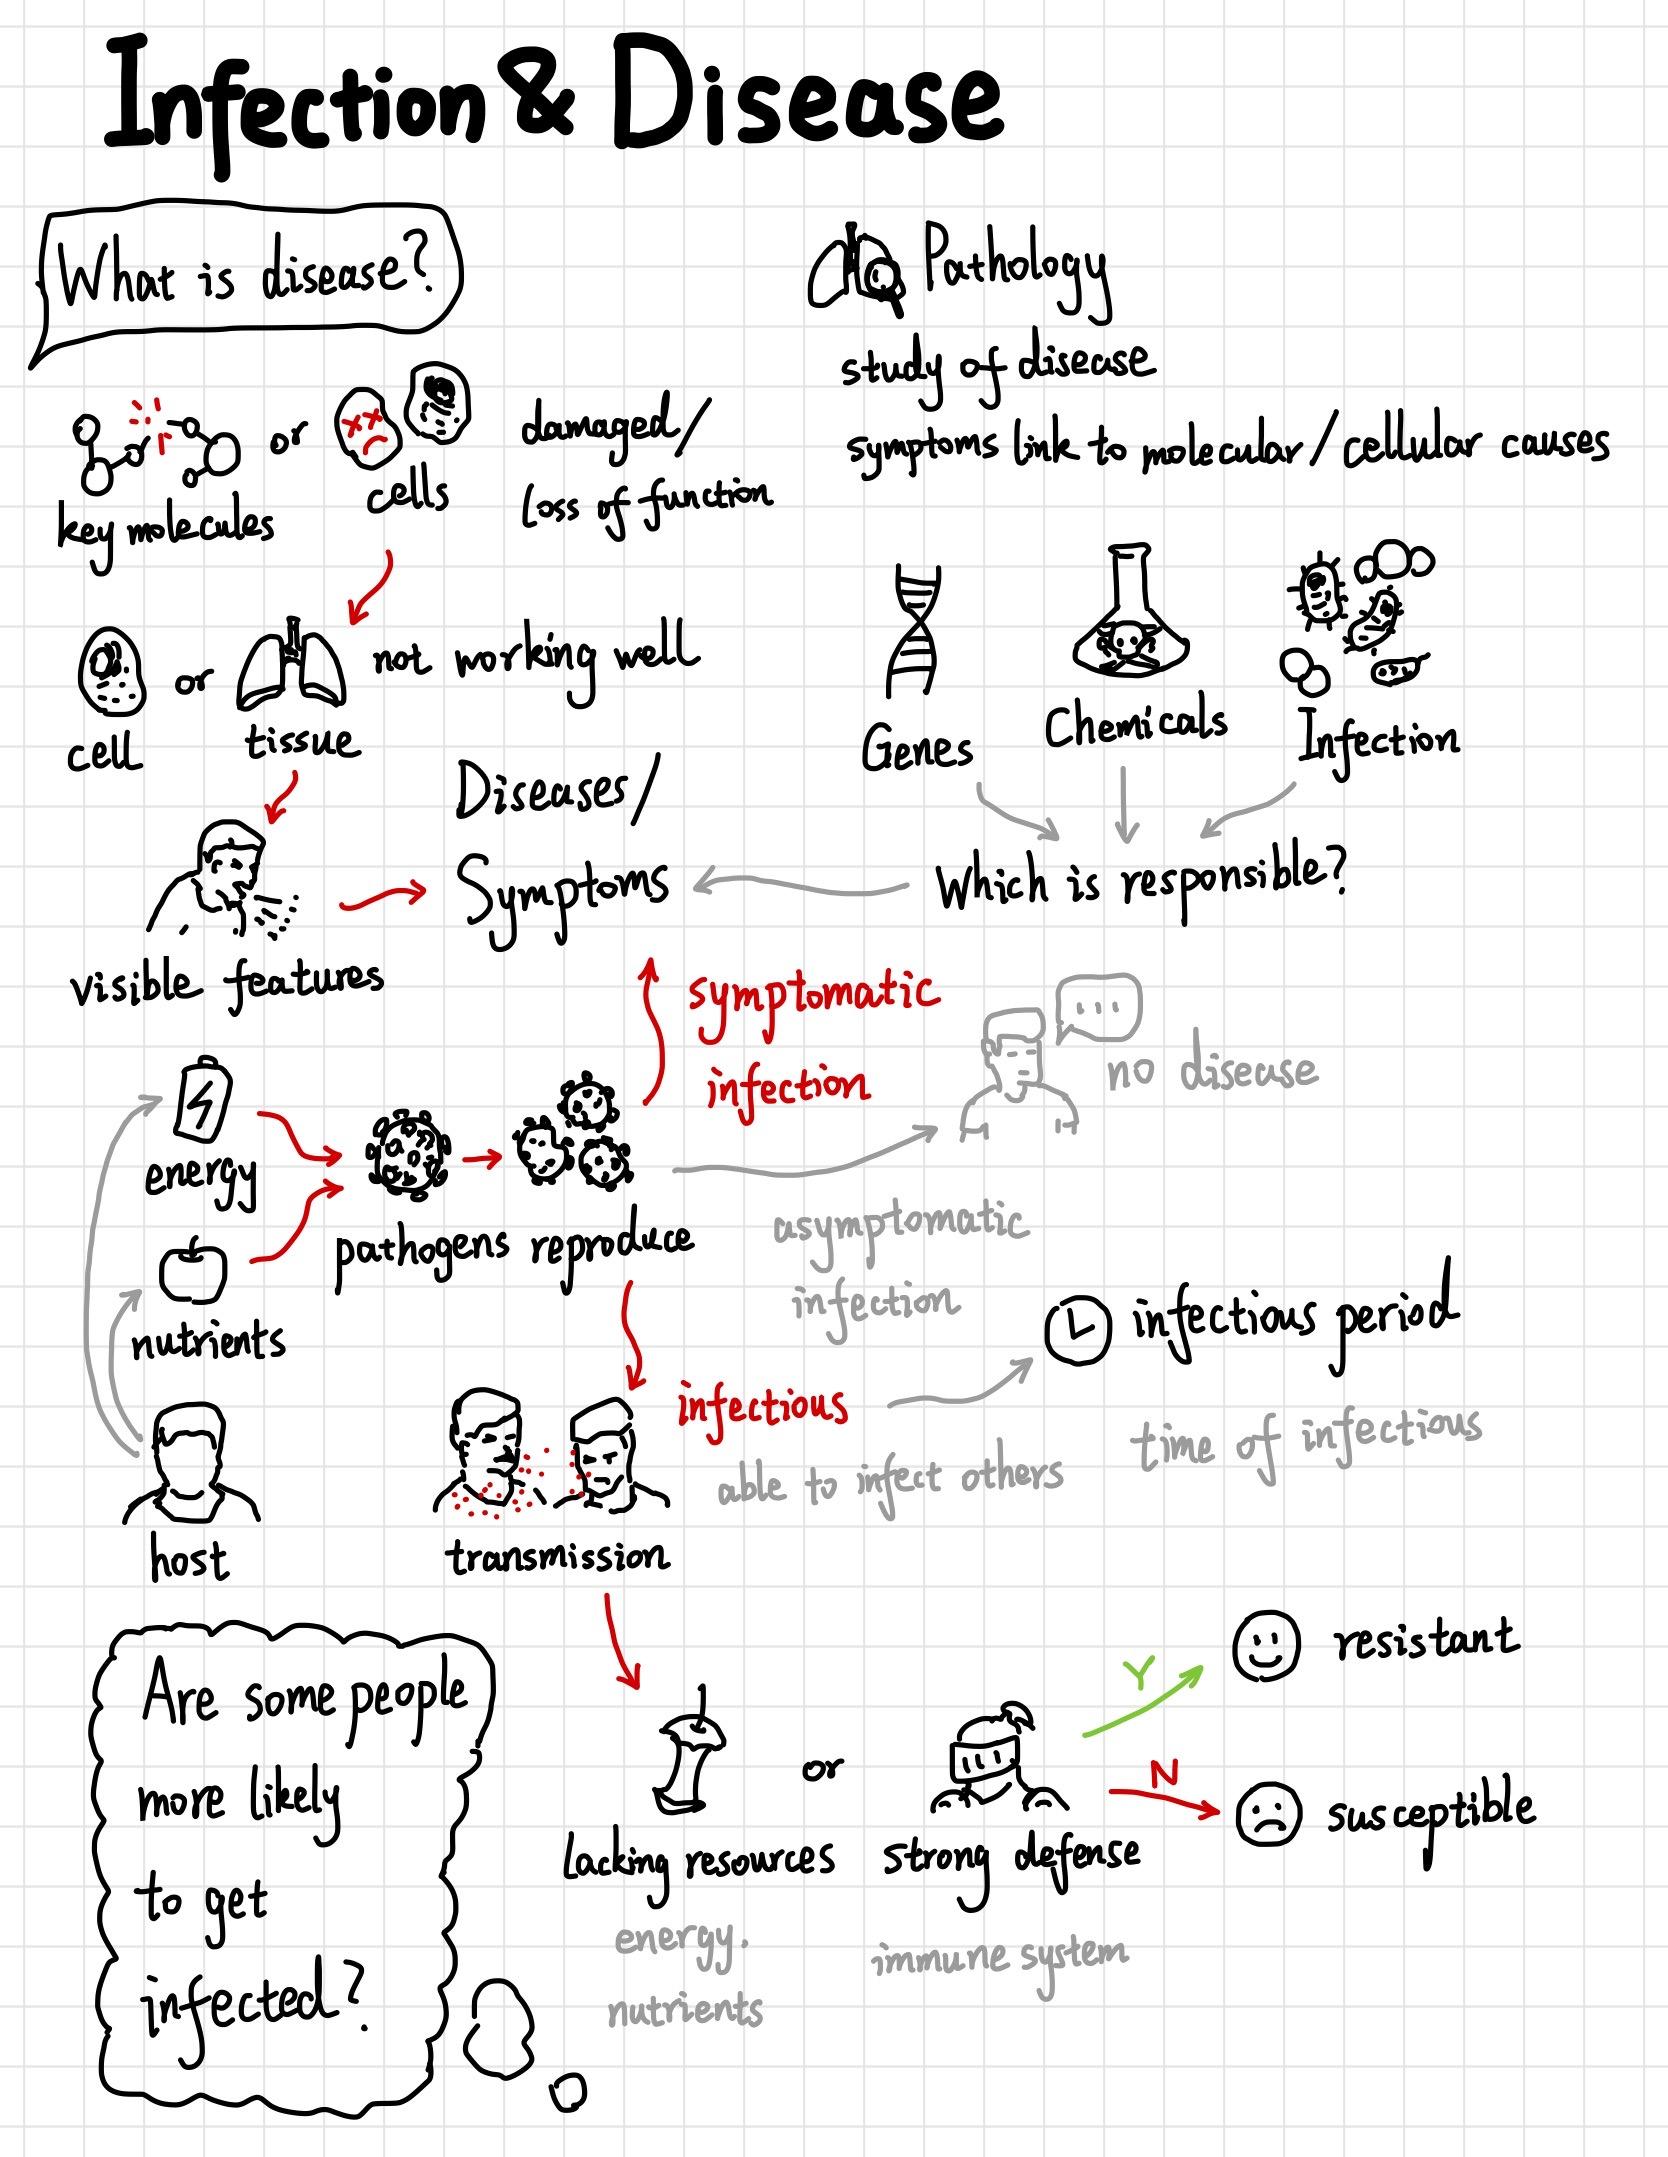 Infection & Disease
What is disease?
Pathology
study of disease
symptoms link to molecular/cellular causes
or
key molecules
cells
damaged/
loss of function
cell
or
tissue
not working well
Genes
Chemicals
Infection
Which is responsible?
Diseases/
Symptoms
visible features
symptomatic
infection
...
no disease
energy
nutrients
host
pathogens reproduce
asymptomatic
infection
infectious
able to infect others
infectious period
time of infectious
transmission
Are some people
more likely
to get
infected?
lacking resources
energy.
nutrients
or
strong defense
immune system
Y
resistant
N
susceptible